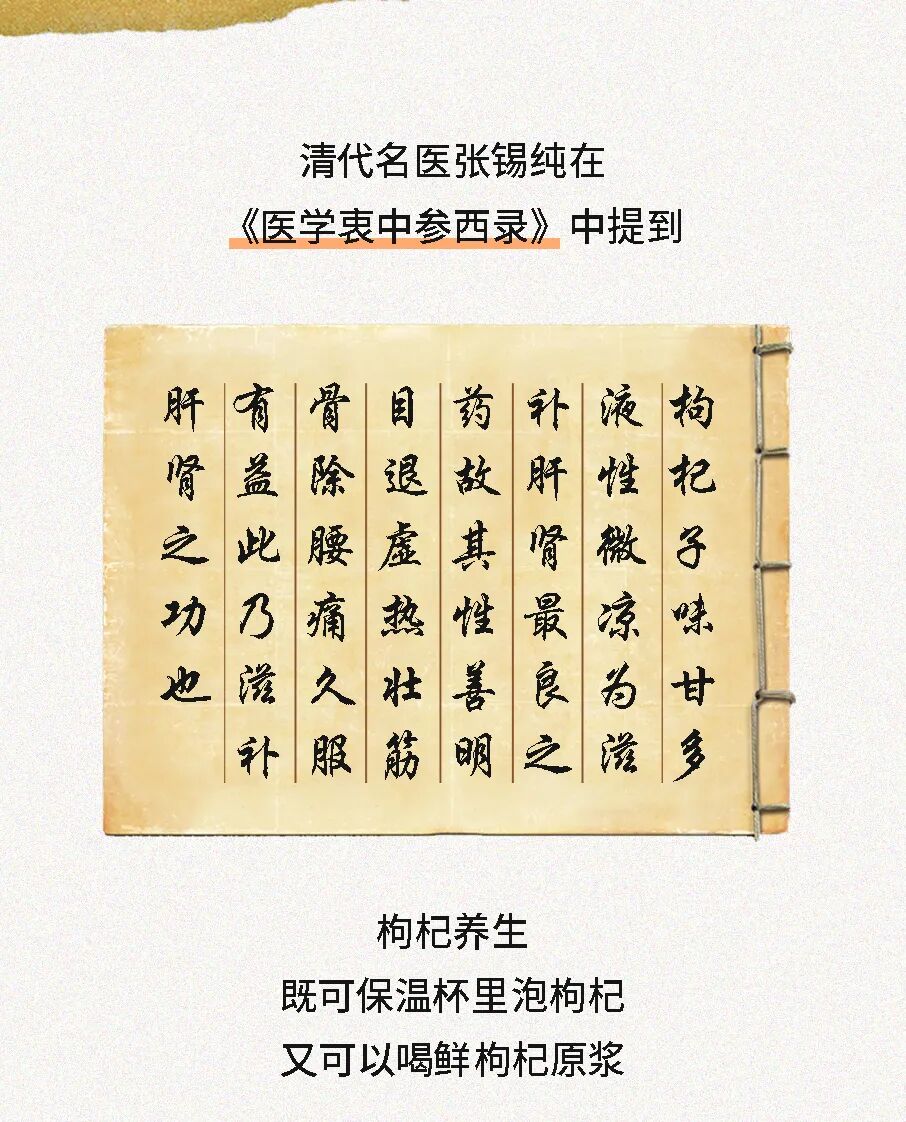 清代名医张锡纯在
《医学衷中参西录》中提到
枸杞子味甘多
液性微凉为滋
补肝肾最良之
药故其性善明
目退虚热壮筋
骨除腰痛久服
有益此乃滋补
肝肾之功也
枸杞养生
既可保温杯里泡枸杞
又可以喝鲜枸杞原浆